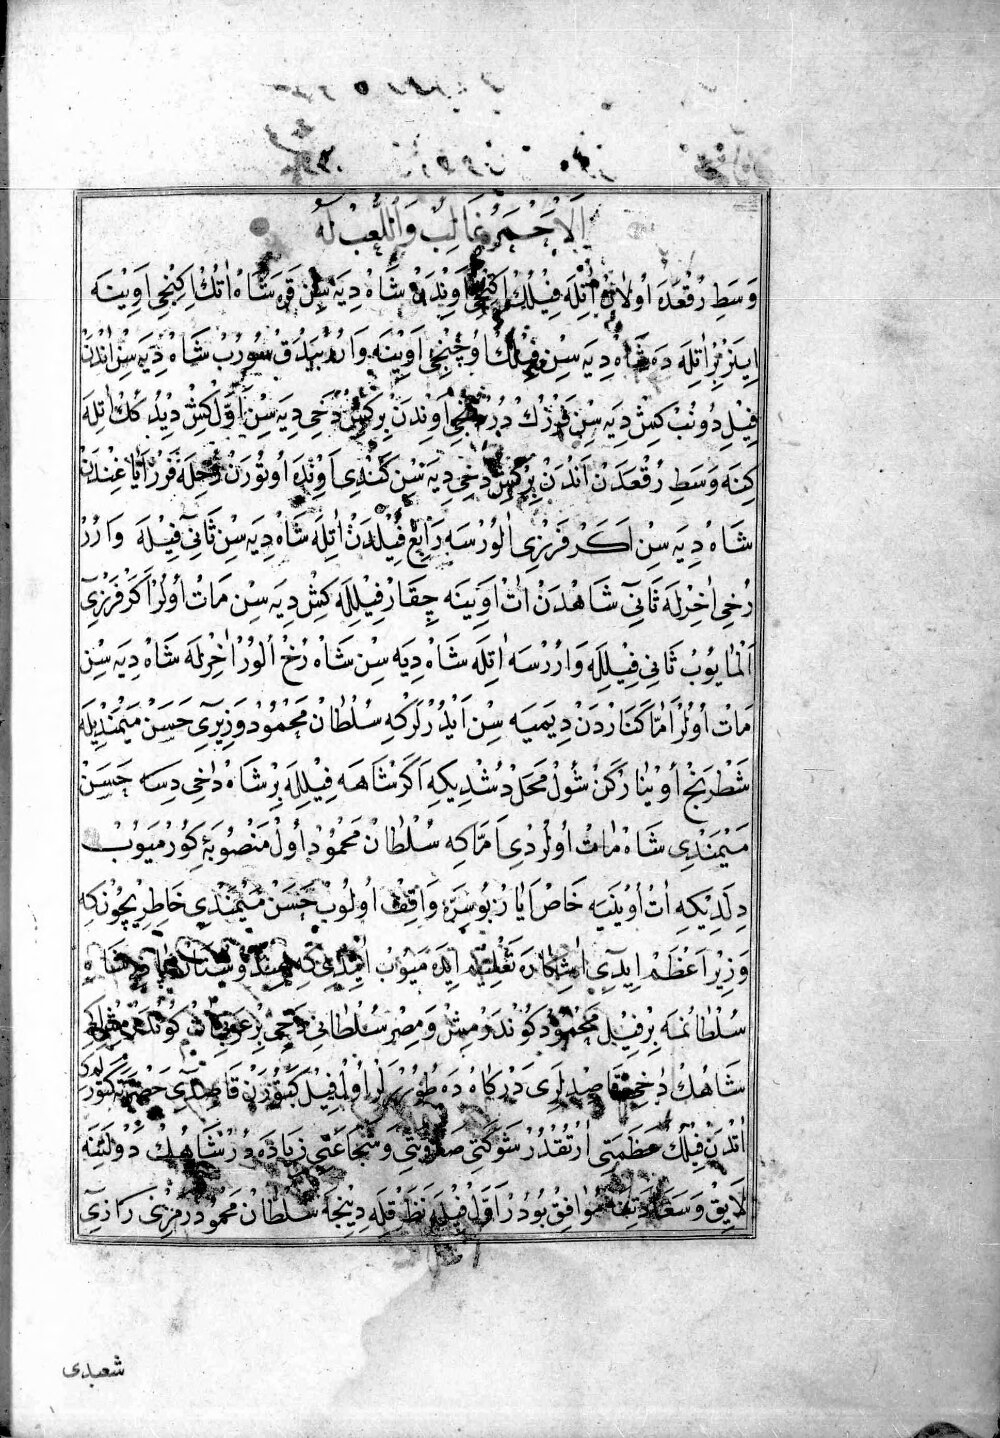 اَلْاَحْمَرُ غَالِبٌ وَاللَّعِبُ لَهُ
وَسَطِ رُقْعَدَه اُولَانْ اٰتِلَه فِيلُكْ اِكِنْجِى اَوِنْدَنْ شَاهْ دِيَه سِنْ قَرَه شَاهْ اٰتُكْ اِكِنْجِى اَوِينَه
اِيلَرْ بِرْاٰتِلَه دَه شَاهْ دِيَه سِنْ فِيلُكْ اُوچُنْجِى اَوِينَه وَارُرْ بَيْدَقْ سُورُبْ شَاهْ دِيَه سِنْ اٰنْدَنْ
فِيلِ دُونُبْ كِشْ دِيَه سِنْ فَرْزُكْ دُرْدُنْجِى اَوِنْدَنْ بِرْكِشْ دَخِى دِيَه سِنْ اَوَّلْ كِشْ دِيدُكُكْ اٰتِلَه
كِنَه وَسَطِ رُقْعَدَنْ اٰنْدَنْ بِرْكِشْ دَخِى دِيَه سِنْ كَنْدِى اَوِنْدَه اُوتُورَنْ رُخِلَه فَرْزْ اَيَاغِنْدَنْ
شَاهْ دِيَه سِنْ اَكَرْ فَرْزِى اٰلُورْسَه رَابِعْ فِيلْدَنْ اٰتِلَه شَاهْ دِيَه سِنْ ثَانِىٓ فِيلَه وَارُرْ
رُخِى اٰخِرْلَه ثَانِىٓ شَاهْدَنْ اٰتْ اَوِينَه چِقَارْ فِيلِلَه كِشْ دِيَه سِنْ مَاتْ اُولُرْ اَكَرْ فَرْزِى
اَلْمَايُوبْ ثَانِى فِيلِلَه وَارُرْسَه اٰتِلَه شَاهْ دِيَه سِنْ شَاهْ رُخْ اٰلُورْ اٰخِرْلَه شَاهْ دِيَه سِنْ
مَاتْ اُولُرْ اَمَّا كَنَارْدَنْ دِيمِيَه سِنْ اَيْدُرْلَرْكِه سُلْطَانْ مَحْمُودْ وَزِيرِى حَسَنْ مَيْمَنْدِيلَه
شَطْرَنْجْ اُوينَارْكَنْ شُولْ مَحَلْ دُشْدِيكِه اَكَرْ شَاهَه فِيلِلَه بِرْشَاهْ دَاخِى دِسَه حَسَنْ
مَيْمَنْدِى شَاهْ مَاتْ اُولُرْدِى اَمَّا كِه سُلْطَانْ مَحْمُودْ اُولْ مَنْصُوبَهٔ كُورْمَيُوبْ
دِلَدِيكِه اٰتْ اُوينَيَه خَاصْ اَيَازْ بُوسِرَّه وَاقِفْ اُولُوبْ حَسَنْ مَيْمَنْدِى خَاطِرِيچُونْكِه
وَزِيرْ اَعْظَمْ اِيدِى اٰشِكَارَه تَعْلِيمْ اِيدَه مَيُوبْ اٰيْتْدِى كِه هِنْدُوسْتَانْ شَاهْ
سُلْطَانُمَه بِرْفِيلْ مَحْمُودْ كُونْدَرْمِشْ وَمِصِرْ سُلْطَانِى دَخِى بِرْ عَرَبِى اٰتْ كُونْدَرْمِشْ
شَاهُكْ دَخِى قَاصِدْلَرِى دَرْكَاهْدَه طُورُرْلَرْ اُولْ فِيلْ كَتُورَنْ قَاصِدِى حَضْرَتَه كَتُورْ
اٰتْدَنْ فِيلُكْ عَظَمَتِى اٰرْتُقْدُرْ شَوْكَتِى صَلَابَتِى وَشَجَاعَتِى زِيَادَه دُرْ شَاهُكْ دَوْلَتِنَه
لَايِقْ وَسَعَادَتِنَه مُوَافِقْ بُودُرْ اَوَّلْ فِيلَه نَظَرْ قِلَه دِينْجَه سُلْطَانْ مَحْمُودْ رَمْزِنِى رَازِىٓ
شعبدى